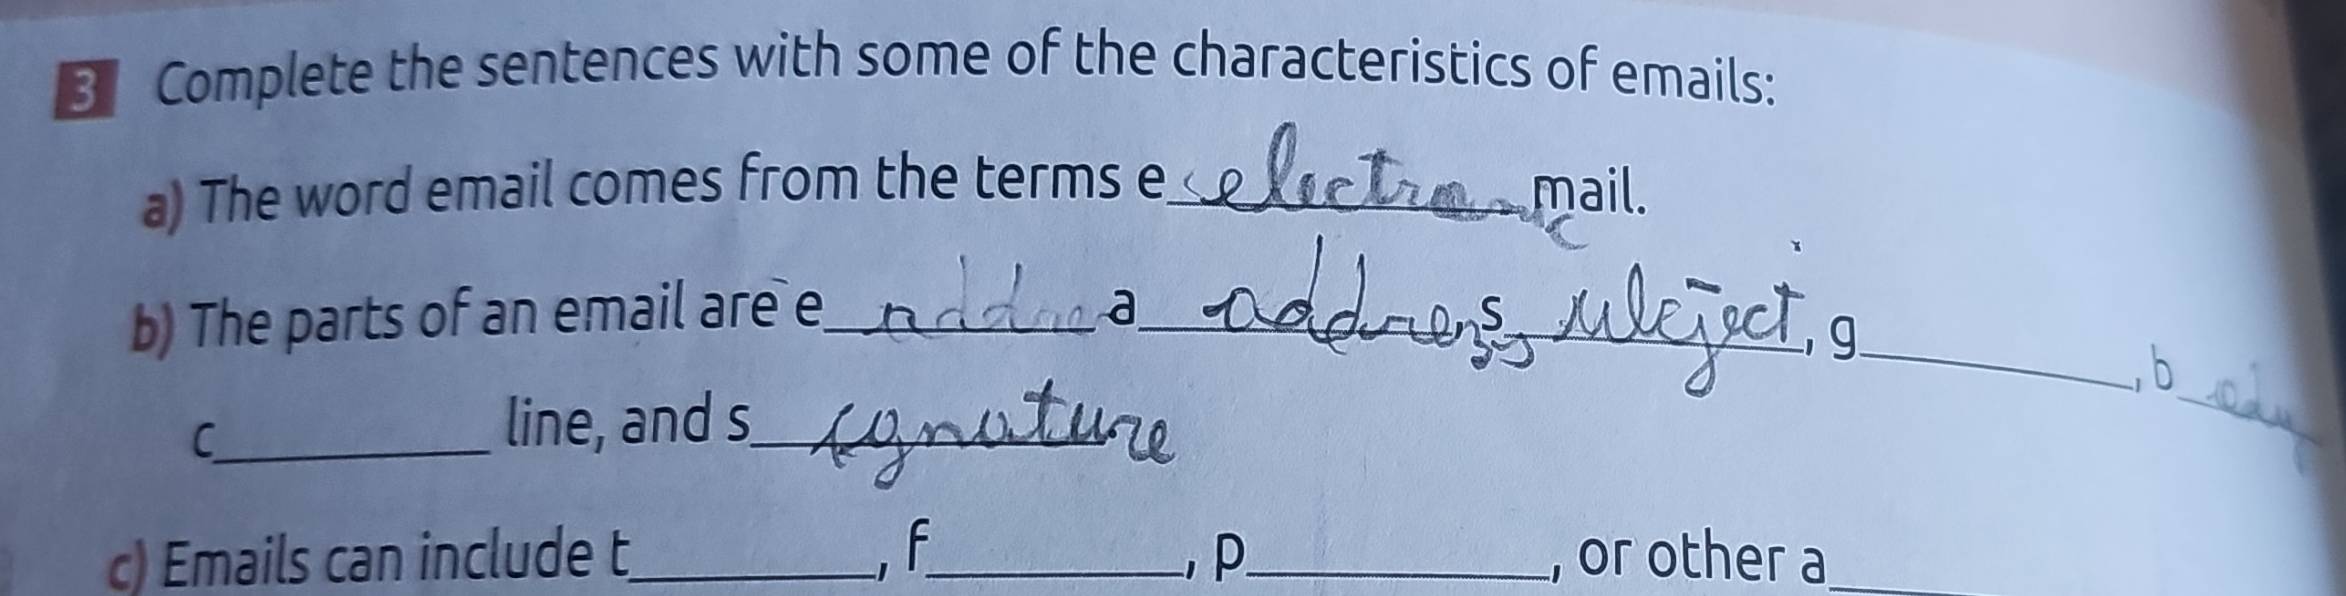 3 Complete the sentences with some of the characteristics of emails:
a) The word email comes from the terms e electronic mail.
b) The parts of an email are e a address, s subject, g , b ody
c line, and s ignature
c) Emails can include t , f , p , or other a